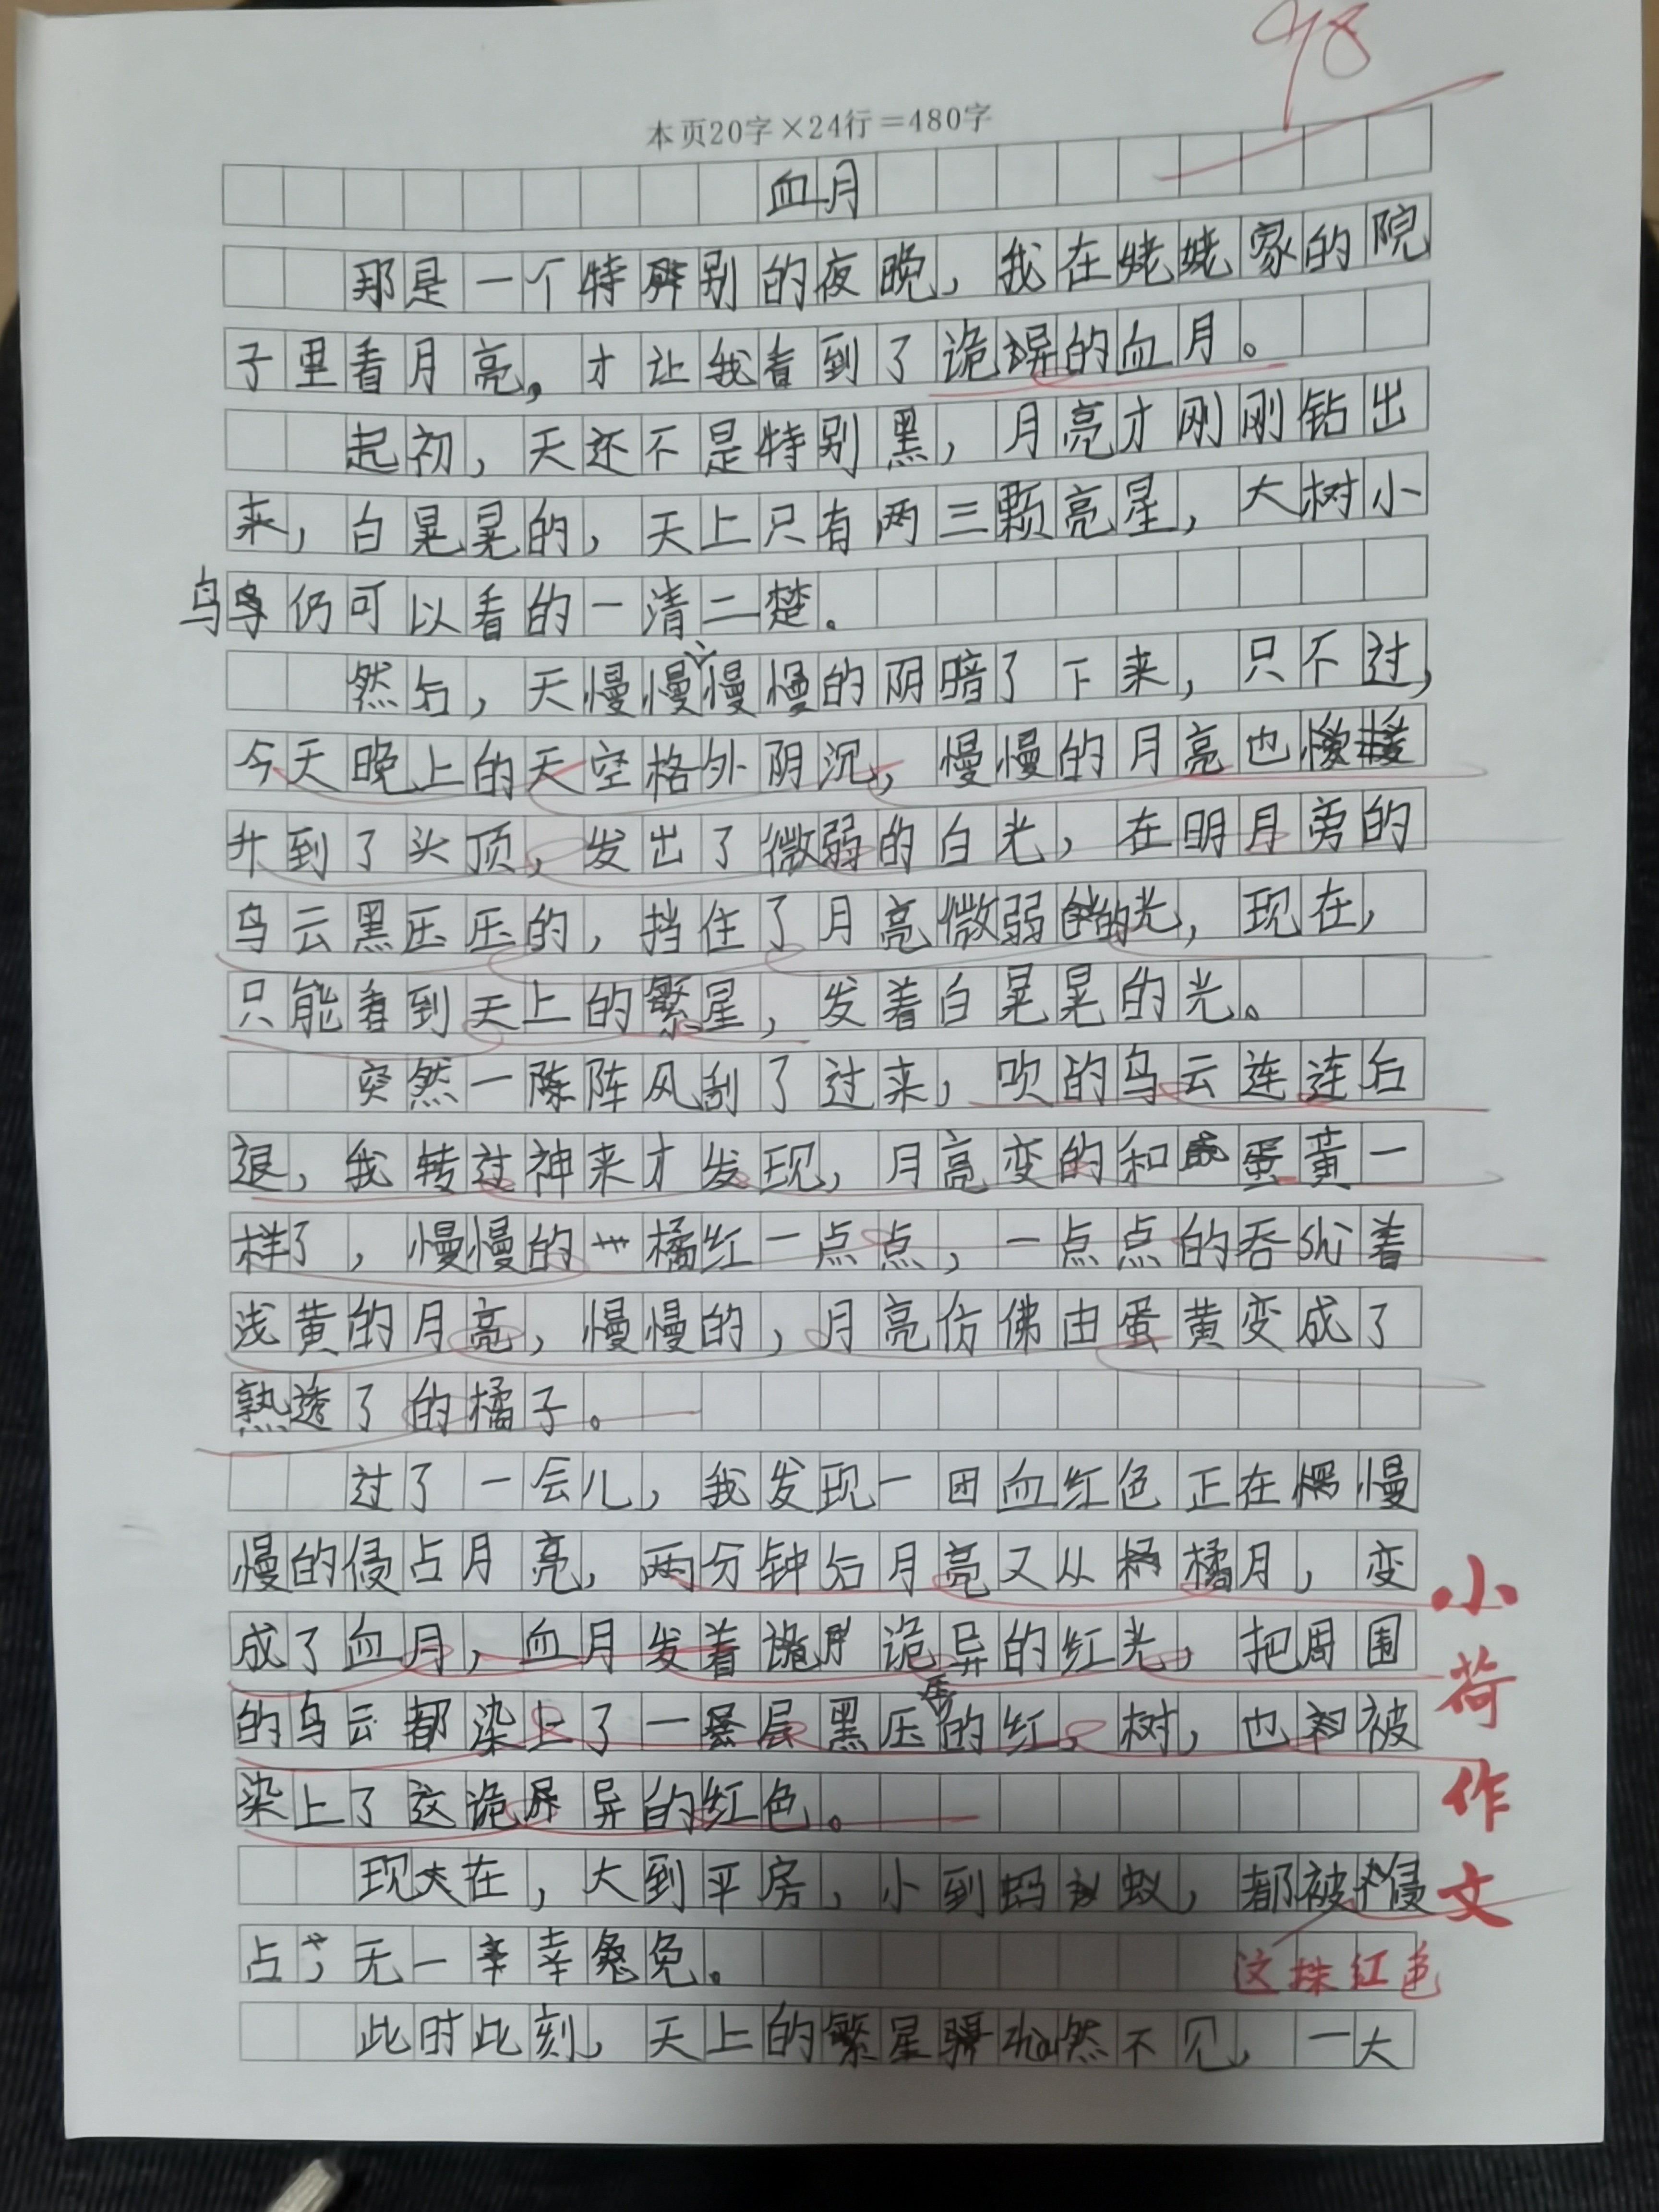 98
本页20字×24行=480字
血月
那是一个特别的夜晚，我在姥姥家的院
子里看月亮，才让我看到了诡异的血月。
起初，天还不是特别黑，月亮才刚刚钻出
来，白晃晃的，天上只有两三颗亮星，大树小
鸟仍可以看的一清二楚。
然后，天慢慢慢慢的阴暗了下来，只不过，
今天晚上的天空格外阴沉，慢慢的月亮也
升到了头顶，发出了微弱的白光，在明月旁的
乌云黑压压的，挡住了月亮微弱的光，现在，
只能看到天上的繁星，发着白晃晃的光。
突然一阵风刮了过来，吹的乌云连连后
退，我转过神来才发现，月亮变的和蛋黄一
样了，慢慢的橘红一点点，一点点的吞shì着
浅黄的月亮，慢慢的，月亮仿佛由蛋黄变成了
熟透了的橘子。
过了一会儿，我发现一团血红色正在慢
慢的侵占月亮，两分钟后月亮又从橘月，变
成了血月，血月发着诡异的红光，把周围
的乌云都染上了一层黑压压的红，树，也被
染上了这诡异的红色。
现在，大到平房，小到蚂蚁，都被侵
占，无一幸免。
这抹红色
此时此刻，天上的繁星骤然不见，一大
小荷作文